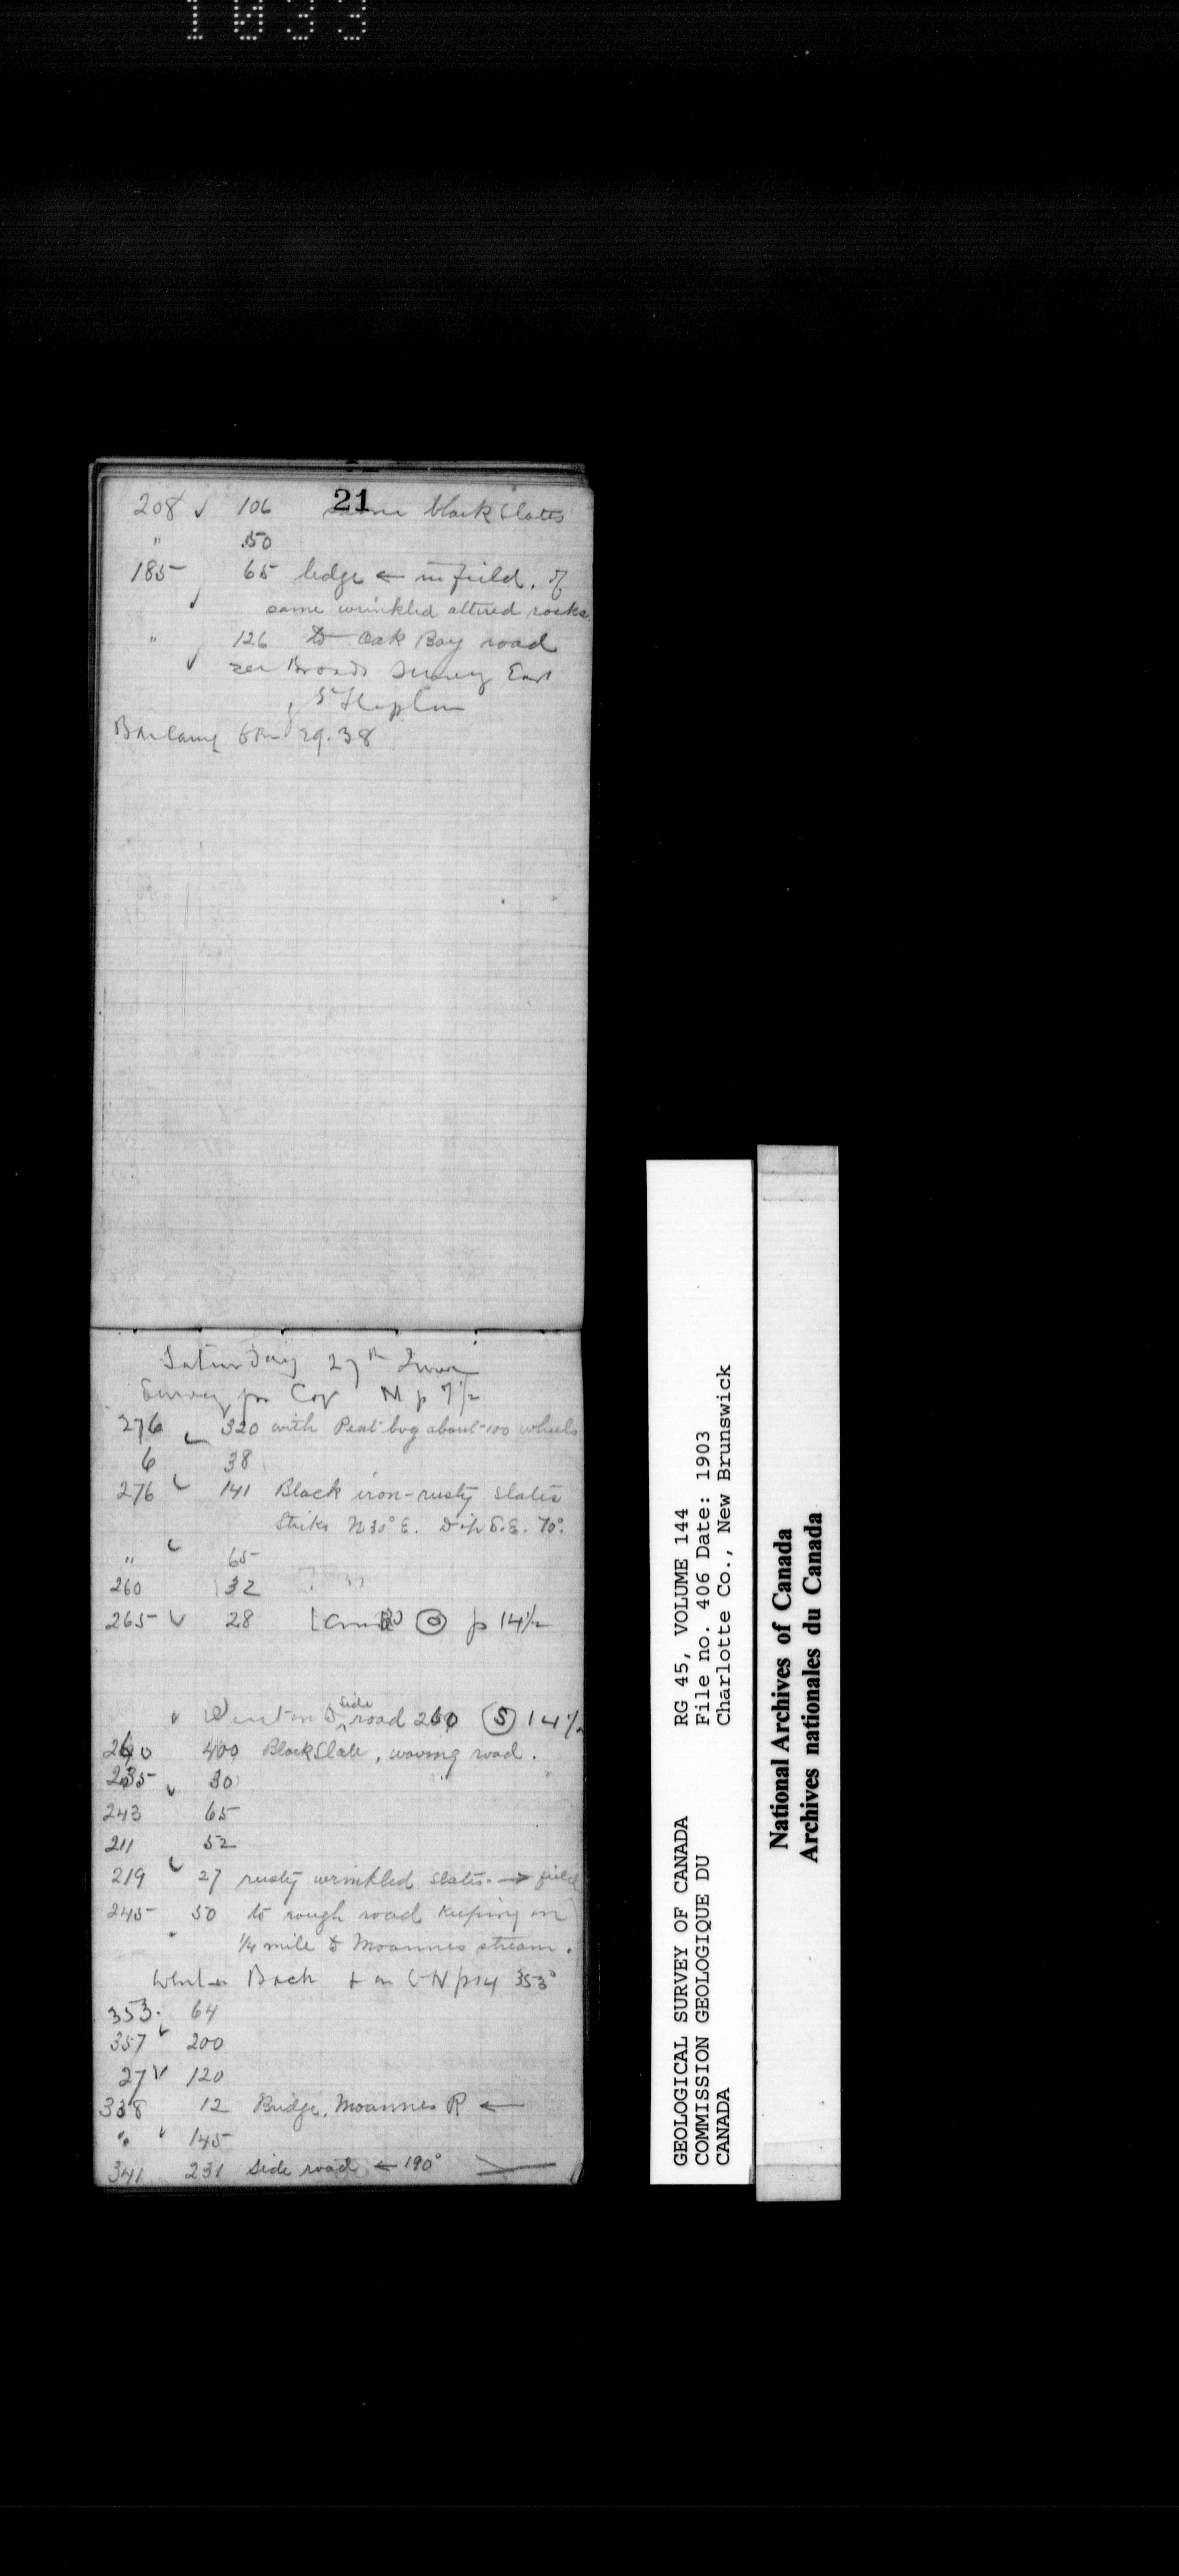 1033
21
208 ✓ 106 same black slates
" 50
185 65 ledge ← in field, of
✓ same wrinkled altered rocks.
" 126 to Oak Bay road
✓ see Broads Survey East
St Stephen
6 29.38
Saturday 27th June
Survey Cor N p 7½
276 ✓ 320 with Peat bog about 100 wheels
6 38
276 ✓ 141 Black iron-rusty slates
Strike N 30° E. Dip S.E. 70°.
" ✓ 65
260 32 "
265 ✓ 28 p 14½
✓ Went on to side road 260 (S) 14½
260 400 Black Slate, waving road.
235 ✓ 30
243 65
211 52
219 ✓ 27 rusty wrinkled slates. → field
245 50 to rough road keeping on
¼ mile to Moannes stream.
Went Back + on p 14 353°
353 64
357 ✓ 200
27 ✓ 120
338 12 Bridge, Moannes R ←
" ✓ 145
341 231 Side road ← 190°
GEOLOGICAL SURVEY OF CANADA RG 45, VOLUME 144
COMMISSION GEOLOGIQUE DU File no. 406 Date: 1903
CANADA Charlotte Co., New Brunswick
National Archives of Canada
Archives nationales du Canada